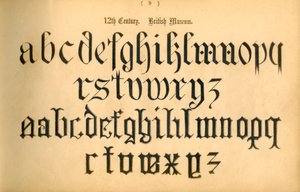 ( 9 )
12th Century. British Museum.
abcdefghiklmnopq
rstvwxyz
aabcdefghiklmnopq
rtuwxyz